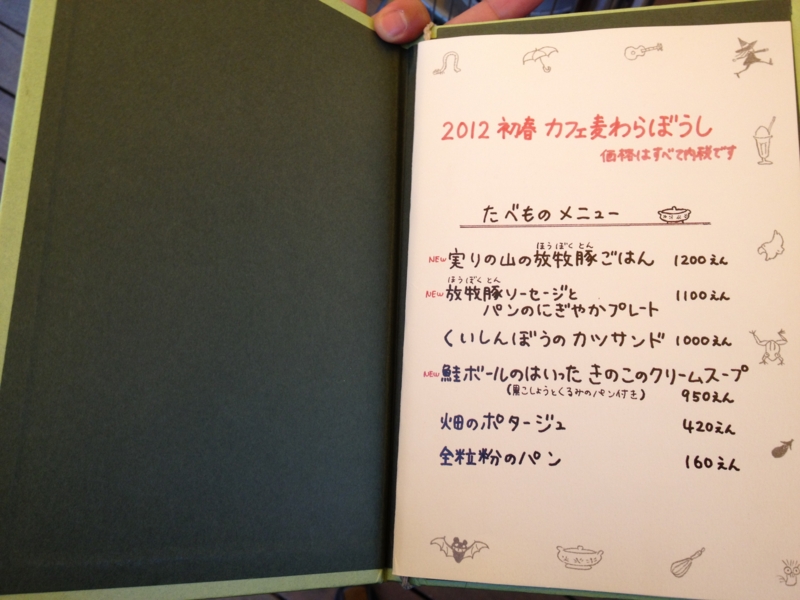 2012 初春 カフェ麦わらぼうし
価格はすべて内税です
たべもの メニュー
NEW 実りの山の放牧豚ごはん 1200えん
ほうぼくとん
NEW 放牧豚ソーセージと 1100えん
ほうぼくとん
パンのにぎやかプレート
くいしんぼうの カツサンド 1000えん
NEW 鮭ボールのはいった きのこのクリームスープ
(黒こしょうとくるみのパン付き) 950えん
畑のポタージュ 420えん
全粒粉のパン 160えん